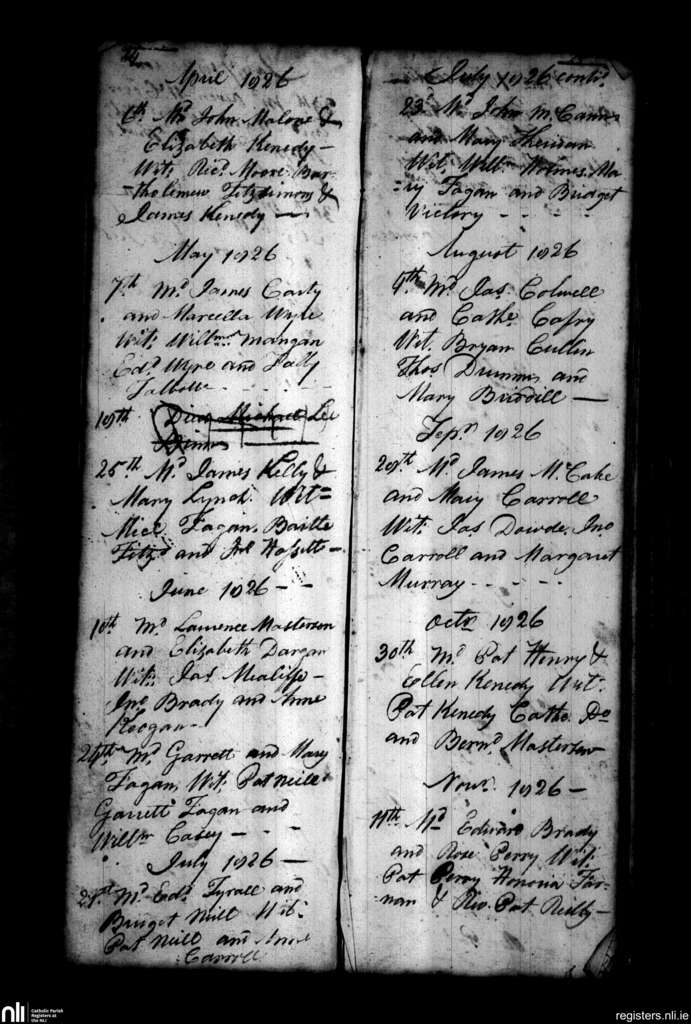 24
April 1826
6th Md John Malone &
Elizabeth Kenedy —
Wit: Ricd. Moore Bar-
-tholemew Fitzsimons &
James Kenedy —
May 1826
7th Md James Carty
and Marcella Wyre
Wit: Willm. Mangan
Edd. Wyre and Pally
Talbott
18th Michael Lee
25th Md James Kelly &
Mary Lynch Wit=
Micl. Fagan, Bartle
Fitzd and
June 1826 - -
10th Md Laurence Masterson
and Elizabeth Dargan
Wit: Jas.
Jno Brady and Anne
Keegan -
24th Md Garrett and Mary
Fagan, Wit: Pat Neill
Garrett Fagan and
Willm Casey - - -
July 1826 —
21st Md Edd. Tyrall and
Bridget Neill Wit:
Pat Neill and Anne
Carroll
July 1826 contd.
23d Md John McCann
and Mary Sheridan
Wit. Willm Holmes, Ma-
-ry Fagan and Bridget
Victory - - - -
August 1826
9th Md Jas. Colwell
and Cathe. Cafry
Wit. Bryan Cullen
Thos Dumm and
Mary Burdill —
Sepr. 1826
28th Md James McCabe
and Mary Carroll
Wit: Jas Dowde, Jno
Carroll and Margaret
Murray - - - -
Octr 1826
30th Md Pat Henry &
Ellen Kenedy Wit:
Pat Kenedy Cathe. Do
and Bernd. Masterson
Novr. 1826 —
11th Md Edward Brady
and Rose Perry Wit:
Pat Perry Honoria Far-
nan & Rev. Pat. Reilly —
nli
Catholic Parish
Registers at
the NLI
registers.nli.ie